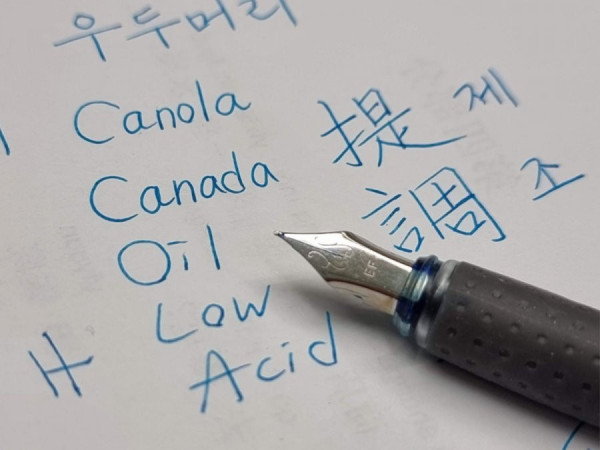 우두머리
Canola
Canada
Oil
Low
Acid
提 제
調 조
EF